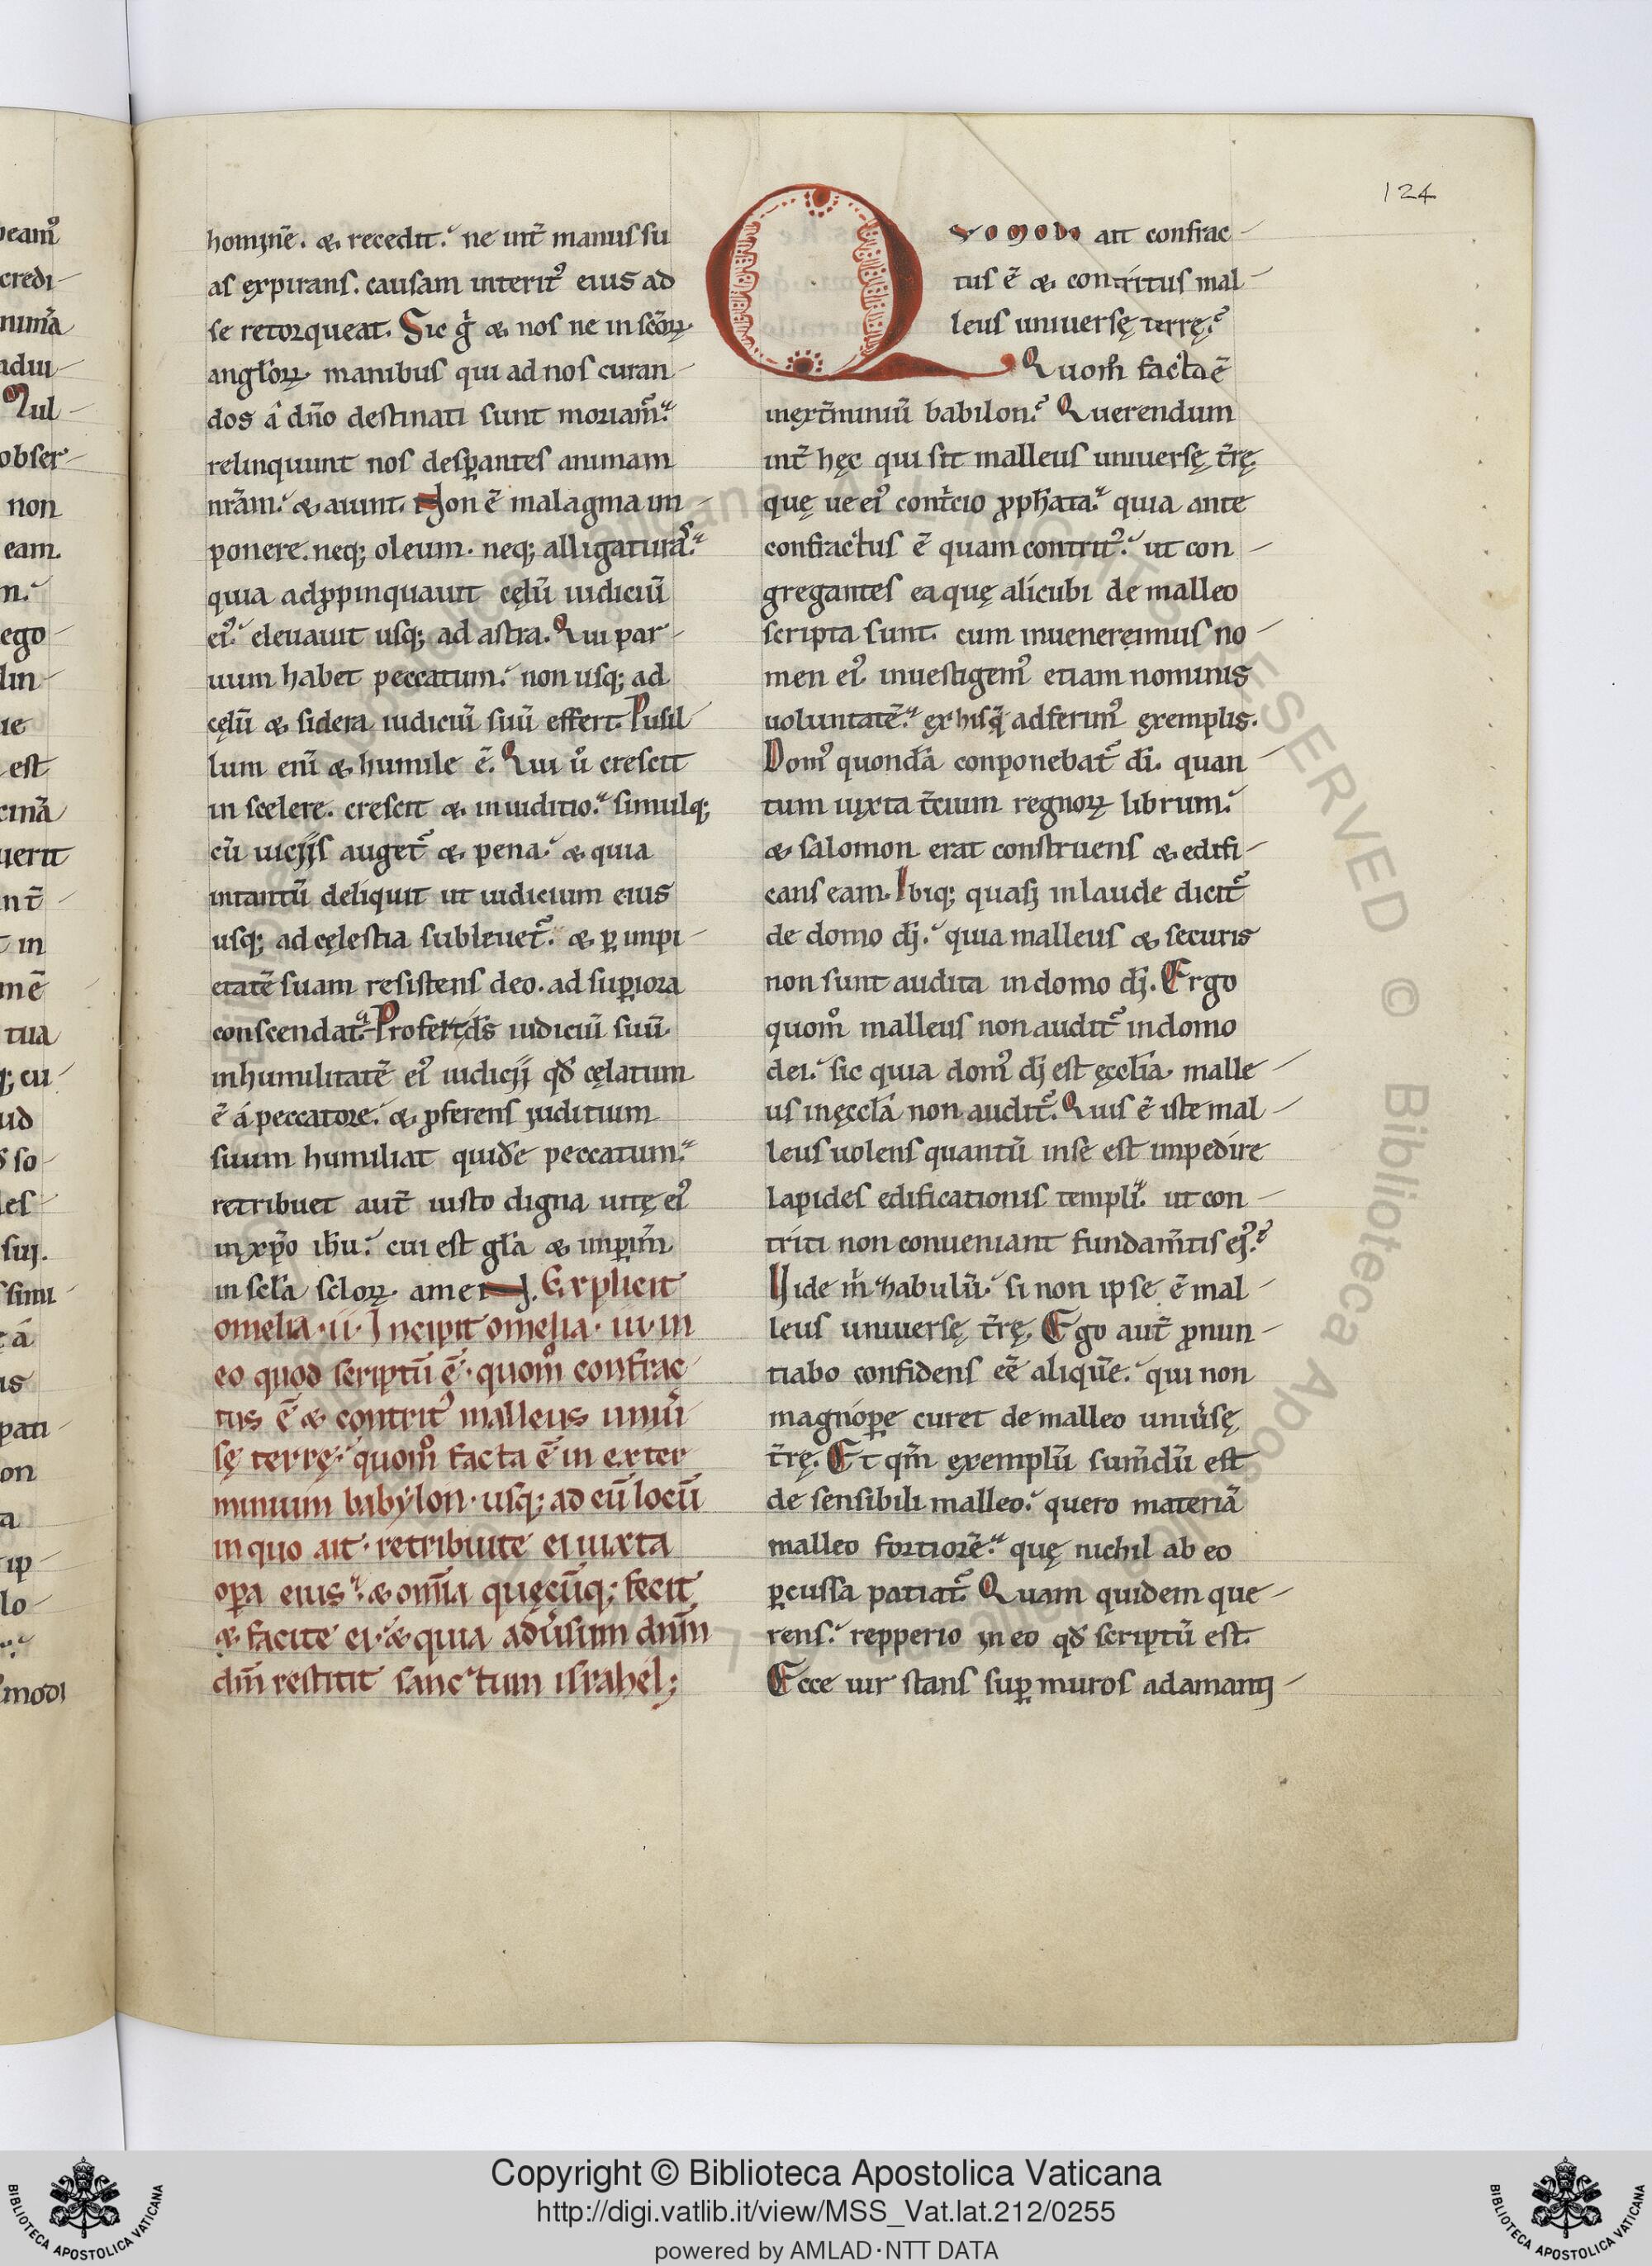 124
hominē. & recedit. ne int̄ manus su
as expirans. causam interit᾿ eius ad
se retorqueat. Sic g̊ & nos ne in sc̄oꝝ
angl̄oꝝ manibus qui ad nos curan-
dos a dn̄o destinati sunt moriam̄.
relinquunt nos desꝑantes animam
nr̄am. & aiunt. Non ē malagma im-
ponere. neq; oleum. neq; alligaturas.
quia adꝓpinquauit cęlū iudiciū
ei᾿. eleuauit usq; ad astra. Qui par-
uum habet peccatum. non usq; ad
cęlū & sidera iudiciū suū effert. Pusil-
lum eni᾿ & humile ē. Qui u᾿ crescit
in scelere. crescit & in iuditio. simulq;
cū uicijs auget᾿ & pena. & quia
intantū deliquit ut iudicium eius
usq; ad cęlestia subleuet᾿. & ꝑ impi-
etatē suam resistens deo. ad suꝑiora
conscendat. Profert ds̄ iudiciū suū
inhumilitatē ei᾿ iudicij qđ cęlatum
ē a peccatore. & ꝓferens iuditium
suum humiliat quidē peccatum.
retribuet aut̄ iusto digna uitę ei᾿
in xp̄o ih̄u. cui est gl̄a & imꝑim̄
in scl̄a scloꝝ. amen. Explicit
omelia. ii. Incipit omelia. iii. in
eo quod scriptū ē. quom̊ confrac-
tus ē & contrit᾿ malleus uniu᾿-
sę terrę. quom̊ facta ē in exter-
minium babylon. usq; ad eū locū
in quo ait. retribuite ei iuxta
oꝑa eius. & om̄ia quęcūq; fecit
& facite ei. & quia adu᾿sum dn̄m
dm̄ restitit sanctum israhel;
Quomodo ait confrac-
tus ē & contritus mal-
leus uniuersę terrę?
Quom̊ facta ē
inext̄miniū babilon? Querendum
int̄ hęc qui sit malleus uniuersę t̄rę.
quę ue ei᾿ contͥcio ꝓph̄ata. quia ante
confractus ē quam contrit᾿. ut con-
gregantes ea quę alicubi de malleo
scripta sunt. cum inuenerimus no-
men ei᾿. inuestigem᾿ etiam nominis
uoluntatē. ex hisq̄ adferim᾿ exemplis.
Dom᾿ quondā conponebat᾿ di᾿. quan-
tum iuxta t̄cium regnoꝝ librum.
& salomon erat construens & edifi-
cans eam. Ibiq; quasi in laude dicit᾿
de domo dj̄. quia malleus & securis
non sunt audita in domo dj̄. Ergo
quom̊ malleus non audit᾿ in domo
dei. sic quia dom᾿ dj̄ est ęccl̄ia. malle-
us in ęccl̄a non audit᾿. Quis ē iste mal-
leus uolens quantū in se est impedire
lapides edificationis templi. ut con-
triti non conueniant fundam̄tis ej᾿?
Uide m̊ habulū. si non ipse ē mal-
leus uniuersę t̄rę. Ego aut̄ ꝓnun-
tiabo confidens eē aliquē. qui non
magnoꝑe curet de malleo uniu᾿sę
t̄rę. Et qm̄ exemplū sum̄dū est
de sensibili malleo. quero materiā
malleo fortiorē. quę nichil ab eo
ꝑcussa patiat᾿. Quam quidem que-
rens. repperio in eo qđ scriptū est.
Ecce uir stans suꝑ muros adamantj-
Copyright © Biblioteca Apostolica Vaticana
http://digi.vatlib.it/view/MSS_Vat.lat.212/0255
powered by AMLAD·NTT DATA
BIBLIOTECA APOSTOLICA VATICANA
BIBLIOTECA APOSTOLICA VATICANA